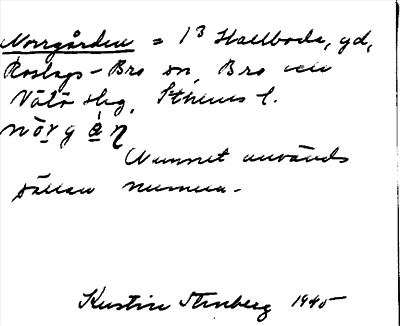 Norrgården = 1³ Hallboda, gd,
Roslags-Bro sn, Bro och
Vätö skg, Sthlms l.
nòrgàn
Namnet används
sällan numera.
Kerstin Stenberg 1945